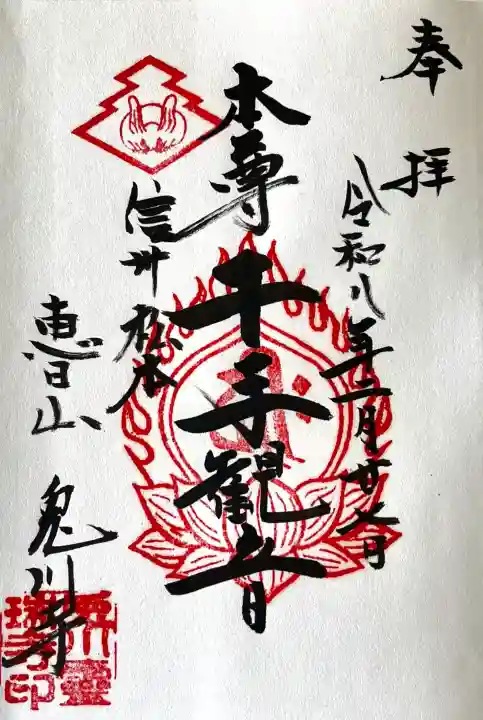 奉拝
令和八年二月廿七日
本尊千手觀音
信州松本
恵日山
兎川寺
兎川靈
瑞寺印